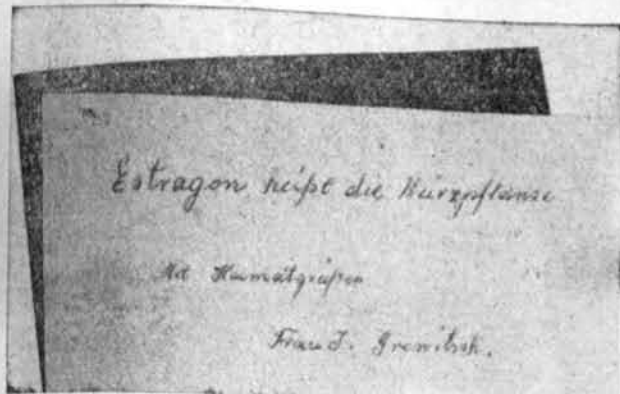 Estragon heißt die Würzpflanze
Mit Heimatgrüßen
Frau J.